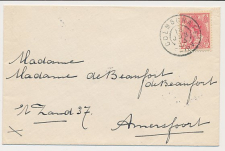 Madame
Madame de Beaufort
de Beaufort
't Zand 37.
Amersfoort